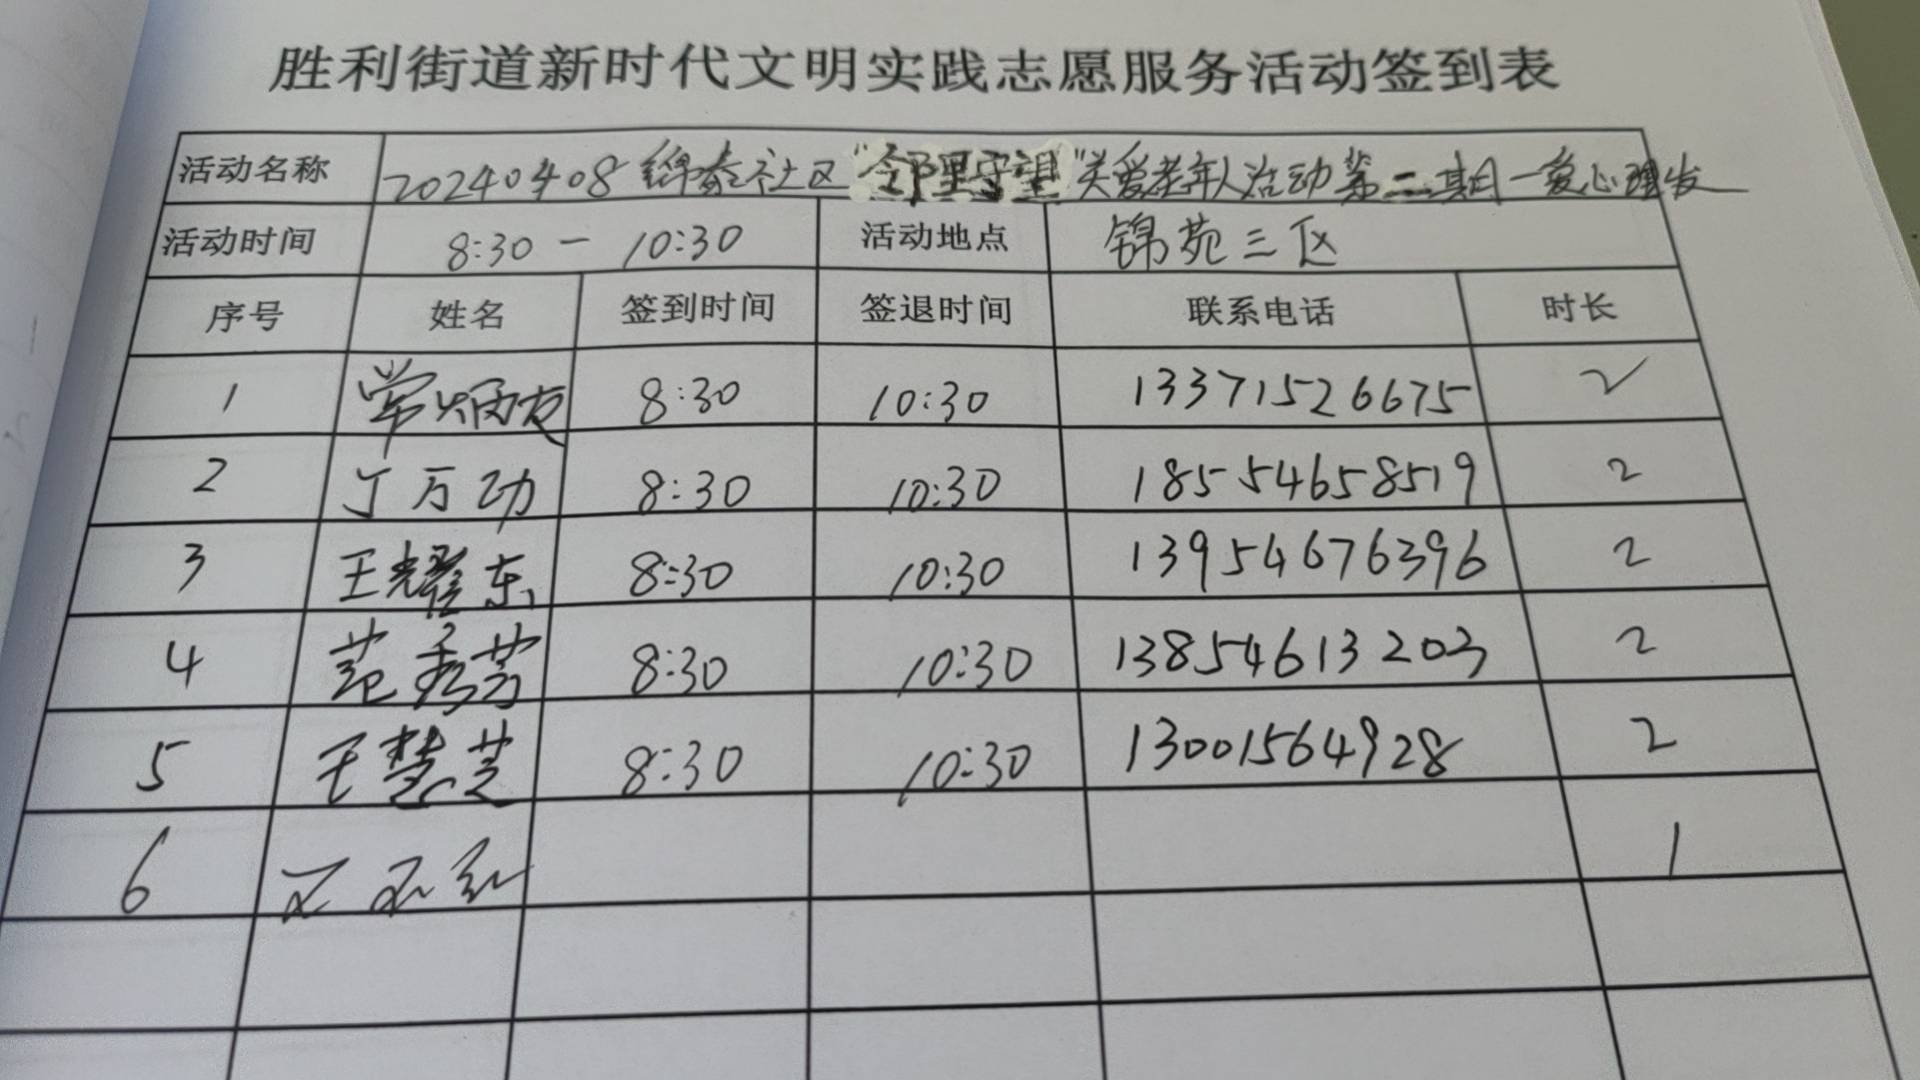 胜利街道新时代文明实践志愿服务活动签到表
活动名称 20240408锦泰社区"邻里守望"关爱老年人活动第二期—爱心理发
活动时间 8:30 — 10:30 活动地点 锦苑三区
序号 姓名 签到时间 签退时间 联系电话 时长
1 8:30 10:30 13371526675 2
2 丁万功 8:30 10:30 18554658519 2
3 王耀东 8:30 10:30 13954676396 2
4 范秀芳 8:30 10:30 13854613203 2
5 王慧芝 8:30 10:30 13001564928 2
6 1